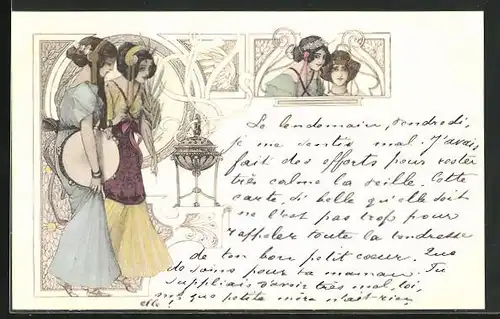 Le lendemain, vendredi,
je me sentis mal. J'avais
fait des efforts pour rester
très calme la veille. Cette
carte, si belle qu'elle soit
ne l'est pas trop pour
rappeler toute la tendresse
de ton bon petit cœur. Que
de soins pour ta maman. Tu
suppliais d'avoir très mal, toi,
que petite mère n'ait rien
elle!